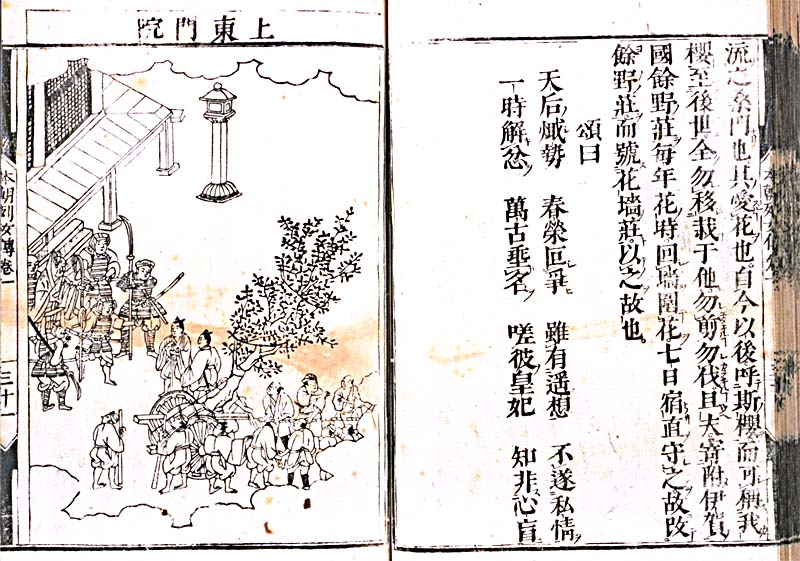 流之桑門也其愛花也自今以後呼斯櫻而可稱我
櫻至後世全勿移栽于他勿剪勿伐且夫寄附伊賀
國餘野莊每年花時回瑞園花七日宿直守之故改
餘野莊而號花墻莊以之故也
頌曰
天后熾勢 春榮叵爭 雖有遥想 不遂私情
一時解忿 萬古垂名 嗟彼皇妃 知非心盲
上東門院
本朝列女傳卷一
三十一